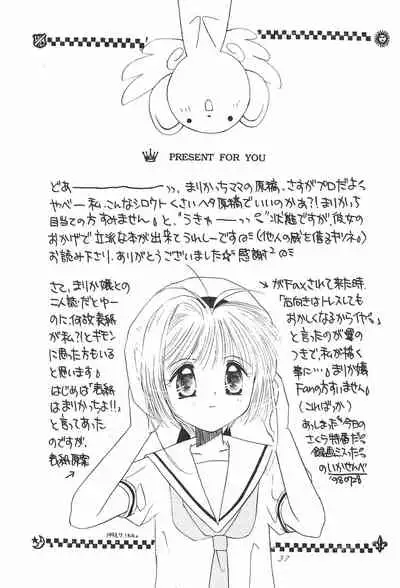 PRESENT FOR YOU
どあーーーッ、まりかっちママの原稿、さすがプロだよっ
やべー私、こんなシロウトくさいヘタ原稿でいいのかぁ?!まりかっち
目当ての方すみません。と、"うきゃーーッ"状態ですが、彼女の
おかげで立派な本が出来てうれしーです(他人の を借るキツネ。)
お読み下さり、ありがとうございました☆感謝2
さて、まりか嬢との
二人誌だとゆー
のに、何故表紙
が私?!とギモン
に思った方もいる
と思います。
はじめは「表紙
はまりかっちよ!!」
と言ってあった
のですが、
表紙原案
がFaxされて来た時、
「右向きはトレスしても
おかしくなるからイヤ。」
と言ったのが運の
つきで、私が描く
事に…。まりか嬢
Fanの方すいません。
(こればっか)
あ、しまった今日の
さくら特番だ
録画ミスった
のいかせんべ
'98 07
1998.7
37